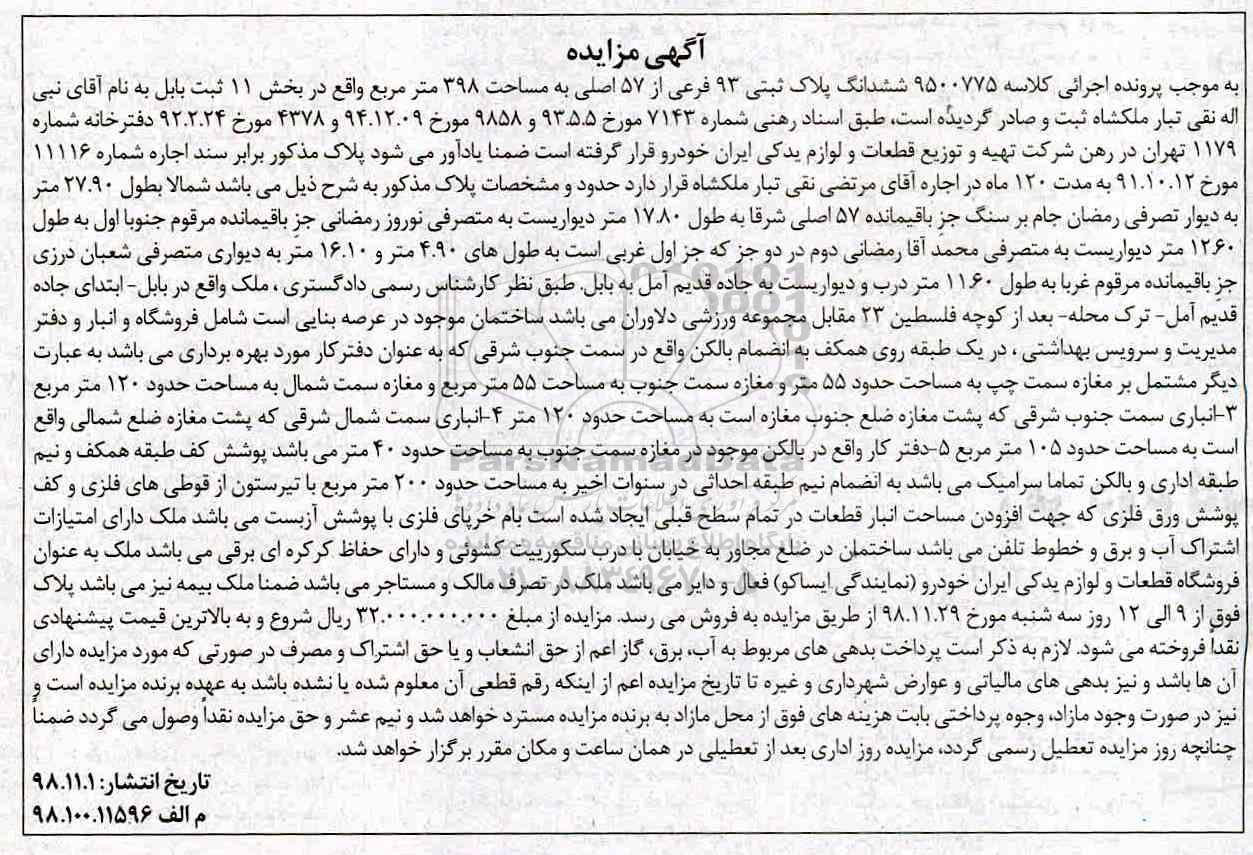 آگهی مزایده
به موجب پرونده اجرائی کلاسه ۹۵۰۰۷۷۵ ششدانگ پلاک ثبتی ۹۳ فرعی از ۵۷ اصلی به مساحت ۳۹۸ متر مربع واقع در بخش ۱۱ ثبت بابل به نام آقای نبی
اله نقی تبار ملکشاه ثبت و صادر گردیده است، طبق اسناد رهنی شماره ۷۱۴۳ مورخ ۹۳.۵.۵ و ۹۸۵۸ مورخ ۹۴.۱۲.۰۹ و ۴۳۷۸ مورخ ۹۲.۲.۲۴ دفترخانه شماره
۱۱۷۹ تهران در رهن شرکت تهیه و توزیع قطعات و لوازم یدکی ایران خودرو قرار گرفته است ضمنا یادآور می شود پلاک مذکور برابر سند اجاره شماره ۱۱۱۱۶
مورخ ۹۱.۱۰.۱۲ به مدت ۱۲۰ ماه در اجاره آقای مرتضی نقی تبار ملکشاه قرار دارد حدود و مشخصات پلاک مذکور به شرح ذیل می باشد شمالا بطول ۲۷.۹۰ متر
به دیوار تصرفی رمضان جام بر سنگ جز باقیمانده ۵۷ اصلی شرقا به طول ۱۷.۸۰ متر دیواریست به متصرفی نوروز رمضانی جز باقیمانده مرقوم جنوبا اول به طول
۱۲.۶۰ متر دیواریست به متصرفی محمد آقا رمضانی دوم در دو جز که جز اول غربی است به طول های ۴.۹۰ متر و ۱۶.۱۰ متر به دیواری متصرفی شعبان درزی
جز باقیمانده مرقوم غربا به طول ۱۱.۶۰ متر درب و دیواریست به جاده قدیم آمل به بابل. طبق نظر کارشناس رسمی دادگستری ، ملک واقع در بابل- ابتدای جاده
قدیم آمل- ترک محله- بعد از کوچه فلسطین ۲۳ مقابل مجموعه ورزشی دلاوران می باشد ساختمان موجود در عرصه بنایی است شامل فروشگاه و انبار و دفتر
مدیریت و سرویس بهداشتی ، در یک طبقه روی همکف به انضمام بالکن واقع در سمت جنوب شرقی که به عنوان دفترکار مورد بهره برداری می باشد به عبارت
دیگر مشتمل بر مغازه سمت چپ به مساحت حدود ۵۵ متر و مغازه سمت جنوب به مساحت ۵۵ متر مربع و مغازه سمت شمال به مساحت حدود ۱۲۰ متر مربع
۳-انباری سمت جنوب شرقی که پشت مغازه ضلع جنوب مغازه است به مساحت حدود ۱۲۰ متر ۴-انباری سمت شمال شرقی که پشت مغازه ضلع شمالی واقع
است به مساحت حدود ۱۰۵ متر مربع ۵-دفتر کار واقع در بالکن موجود در مغازه سمت جنوب به مساحت حدود ۴۰ متر می باشد پوشش کف طبقه همکف و نیم
طبقه اداری و بالکن تماما سرامیک می باشد به انضمام نیم طبقه احداثی در سنوات اخیر به مساحت حدود ۲۰۰ متر مربع با تیرستون از قوطی های فلزی و کف
پوشش ورق فلزی که جهت افزودن مساحت انبار قطعات در تمام سطح قبلی ایجاد شده است بام خرپای فلزی با پوشش آزبست می باشد ملک دارای امتیازات
اشتراک آب و برق و خطوط تلفن می باشد ساختمان در ضلع مجاور به خیابان با درب سکوریت کشوئی و دارای حفاظ کرکره ای برقی می باشد ملک به عنوان
فروشگاه قطعات و لوازم یدکی ایران خودرو (نمایندگی ایساکو) فعال و دایر می باشد ملک در تصرف مالک و مستاجر می باشد ضمنا ملک بیمه نیز می باشد پلاک
فوق از ۹ الی ۱۲ روز سه شنبه مورخ ۹۸.۱۱.۲۹ از طریق مزایده به فروش می رسد. مزایده از مبلغ ۳۲.۰۰۰.۰۰۰.۰۰۰ ریال شروع و به بالاترین قیمت پیشنهادی
نقداً فروخته می شود. لازم به ذکر است پرداخت بدهی های مربوط به آب، برق، گاز اعم از حق انشعاب و یا حق اشتراک و مصرف در صورتی که مورد مزایده دارای
آن ها باشد و نیز بدهی های مالیاتی و عوارض شهرداری و غیره تا تاریخ مزایده اعم از اینکه رقم قطعی آن معلوم شده یا نشده باشد به عهده برنده مزایده است و
نیز در صورت وجود مازاد، وجوه پرداختی بابت هزینه های فوق از محل مازاد به برنده مزایده مسترد خواهد شد و نیم عشر و حق مزایده نقداً وصول می گردد ضمناً
چنانچه روز مزایده تعطیل رسمی گردد، مزایده روز اداری بعد از تعطیلی در همان ساعت و مکان مقرر برگزار خواهد شد.
تاریخ انتشار: ۹۸.۱۱.۱
م الف ۹۸.۱۰۰.۱۱۵۹۶
ParsNamadData
پایگاه اطلاع رسانی مناقصه و مزایده